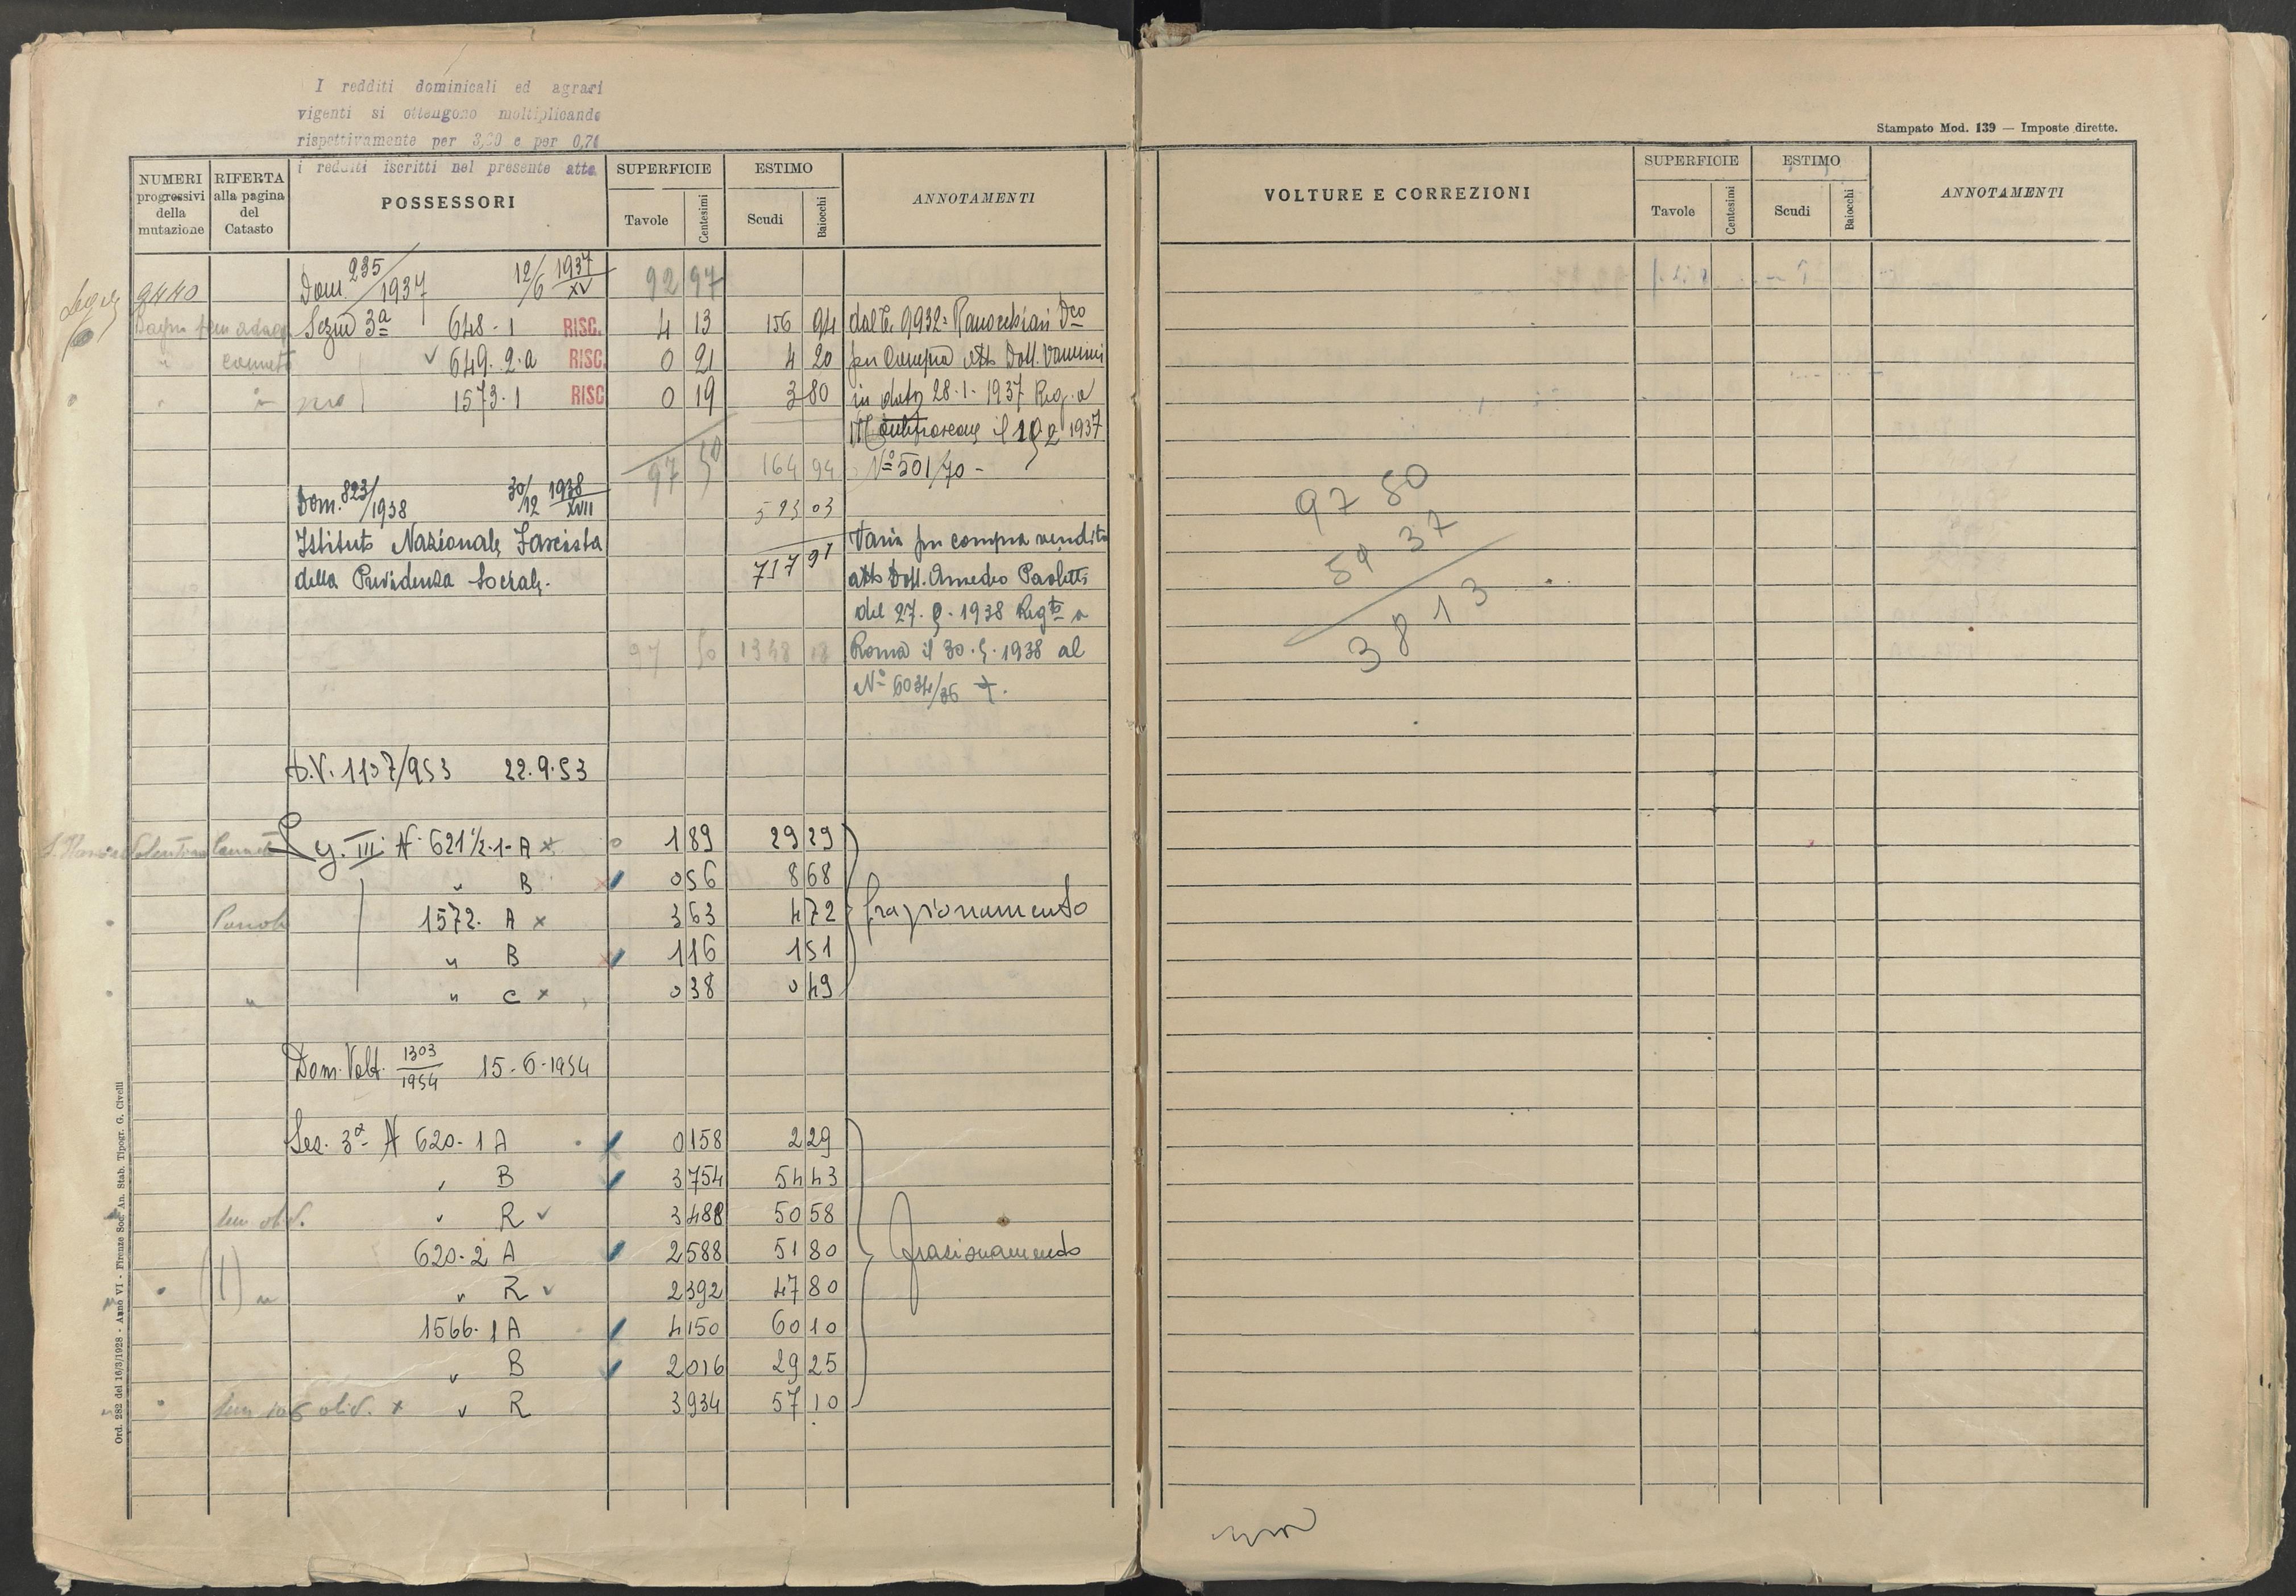 I redditi dominicali ed agrari
vigenti si ottengono moltiplicando
rispettivamente per 3,20 e per 0,70
i redditi iscritti nel presente atto.
Stampato Mod. 139 — Imposte dirette.
NUMERI progressivi della mutazione
RIFERTA alla pagina del Catasto
POSSESSORI
SUPERFICIE
Tavole Centesimi
ESTIMO
Scudi Baiocchi
ANNOTAMENTI
9440 Dom. 235/1937 12/6 1937 XV 92 97
Sezne 3ª 648-1 RISC. 4 13 156 94 dal C. 9932
649.2.a RISC. 0 21 4 20 per Compra atto Dott. Vannini
1573-1 RISC 0 19 3 80 in data 28.1.1937 Reg. a
il 1937
97 50 164 94 N° 501/70 -
Dom. 823/1938 30/12 1938 XVII 03
Istituto Nazionale Fascista Varia per compra vendita
della Previdenza Sociale. 717 97 atto Dott. Amedeo Paoletti
del 27. 1938 Regto a
97 50 1348 18 Roma il 30. 1938 al
N° 6034/36
D.V. 1137/953 22.9.53
III N° 621½-1-A x 1 89 29 29
" B 0 56 8 68
1572. A x 3 63 4 72 frazionamento
" B 1 16 1 51
" C x 0 38 0 49
Dom. Volt. 1303/1954 15-6-1954
Sez. 3ª N 620-1 A 0 158 2 29
" B 3 754 54 43
" R 3 488 50 58
620-2 A 2 588 51 80 frazionamento
(1) " R 2 392 47 80
1566-1 A 4 150 60 10
" B 2 016 29 25
x " R 3 934 57 10
Ord. 282 del 16/3/1928 - Anno VI - Firenze Soc. An. Stab. Tipogr. G. Civelli
VOLTURE E CORREZIONI
SUPERFICIE
Tavole Centesimi
ESTIMO
Scudi Baiocchi
ANNOTAMENTI
97 50
59 37
38 13